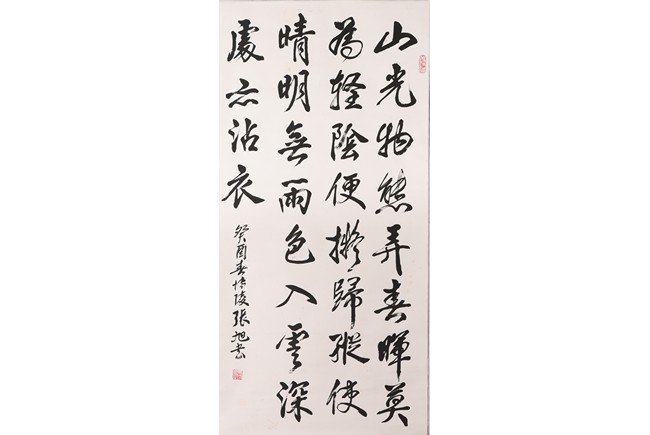 山光物態弄春暉莫
為輕陰便擬歸縱使
晴明無雨色入雲深
處亦沾衣
癸酉春陵張旭書